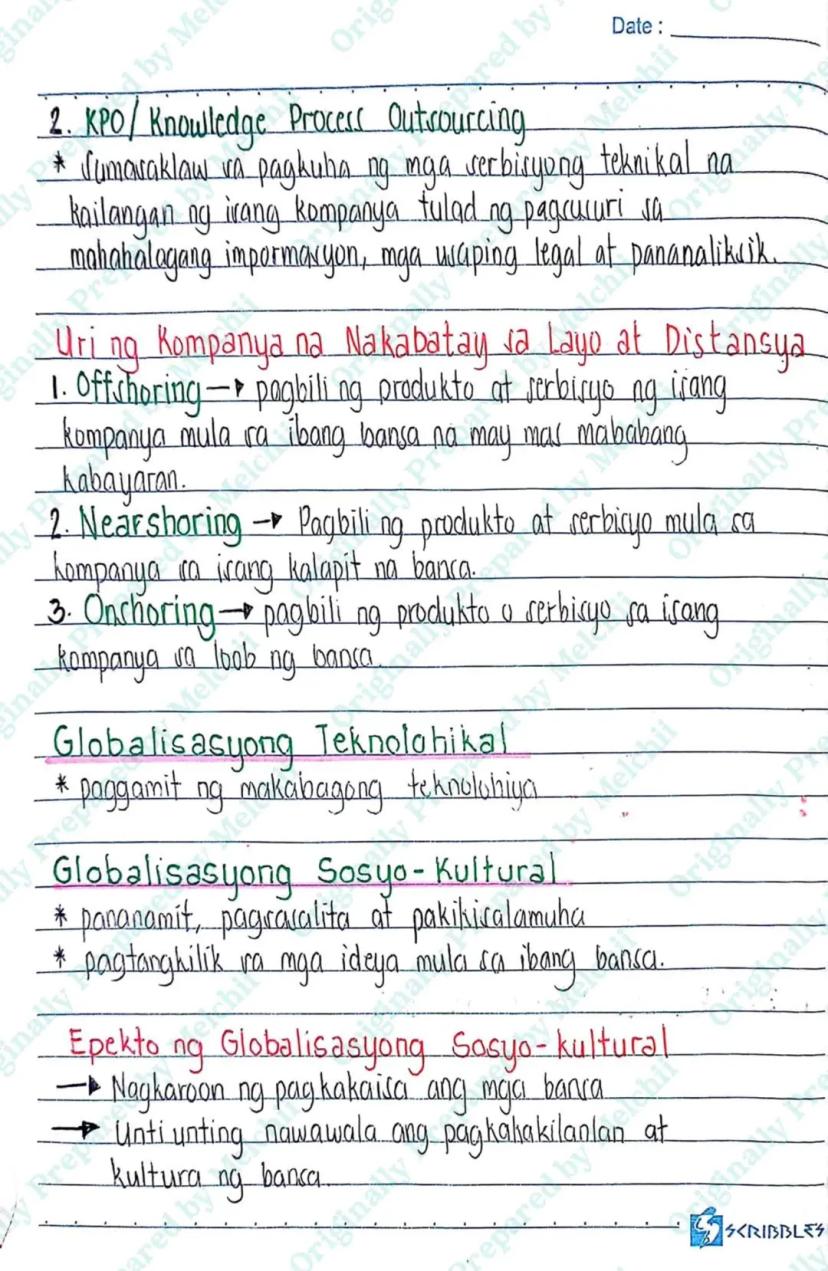 Date :
2. KPO/Knowledge Process Outsourcing
* Sumasaklaw sa pagkuha ng mga serbisyong teknikal na
kailangan ng isang kompanya tulad ng pagsusuri sa
mahahalagang impormasyon, mga usaping legal at pananaliksik.
Uri ng Kompanya na Nakabatay sa Layo at Distansya
1. Offshoring → pagbili ng produkto at serbisyo ng isang
kompanya mula sa ibang bansa na may mas mababang
kabayaran.
2. Nearshoring → Pagbili ng produkto at serbisyo mula sa
kompanya sa isang kalapit na bansa.
3. Onshoring → pagbili ng produkto o serbisyo sa isang
kompanya sa loob ng bansa.
Globalisasyong Teknolohikal
* paggamit ng makabagong teknolohiya
Globalisasyong Sosyo-Kultural
* pananamit, pagsasalita at pakikisalamuha
* pagtangkilik sa mga ideya mula sa ibang bansa.
Epekto ng Globalisasyong Sosyo-kultural
→ Nagkaroon ng pagkakaisa ang mga bansa
→ Unti unting nawawala ang pagkakakilanlan at
kultura ng bansa.
SCRIBBLES
Originally Prepared by Melchii